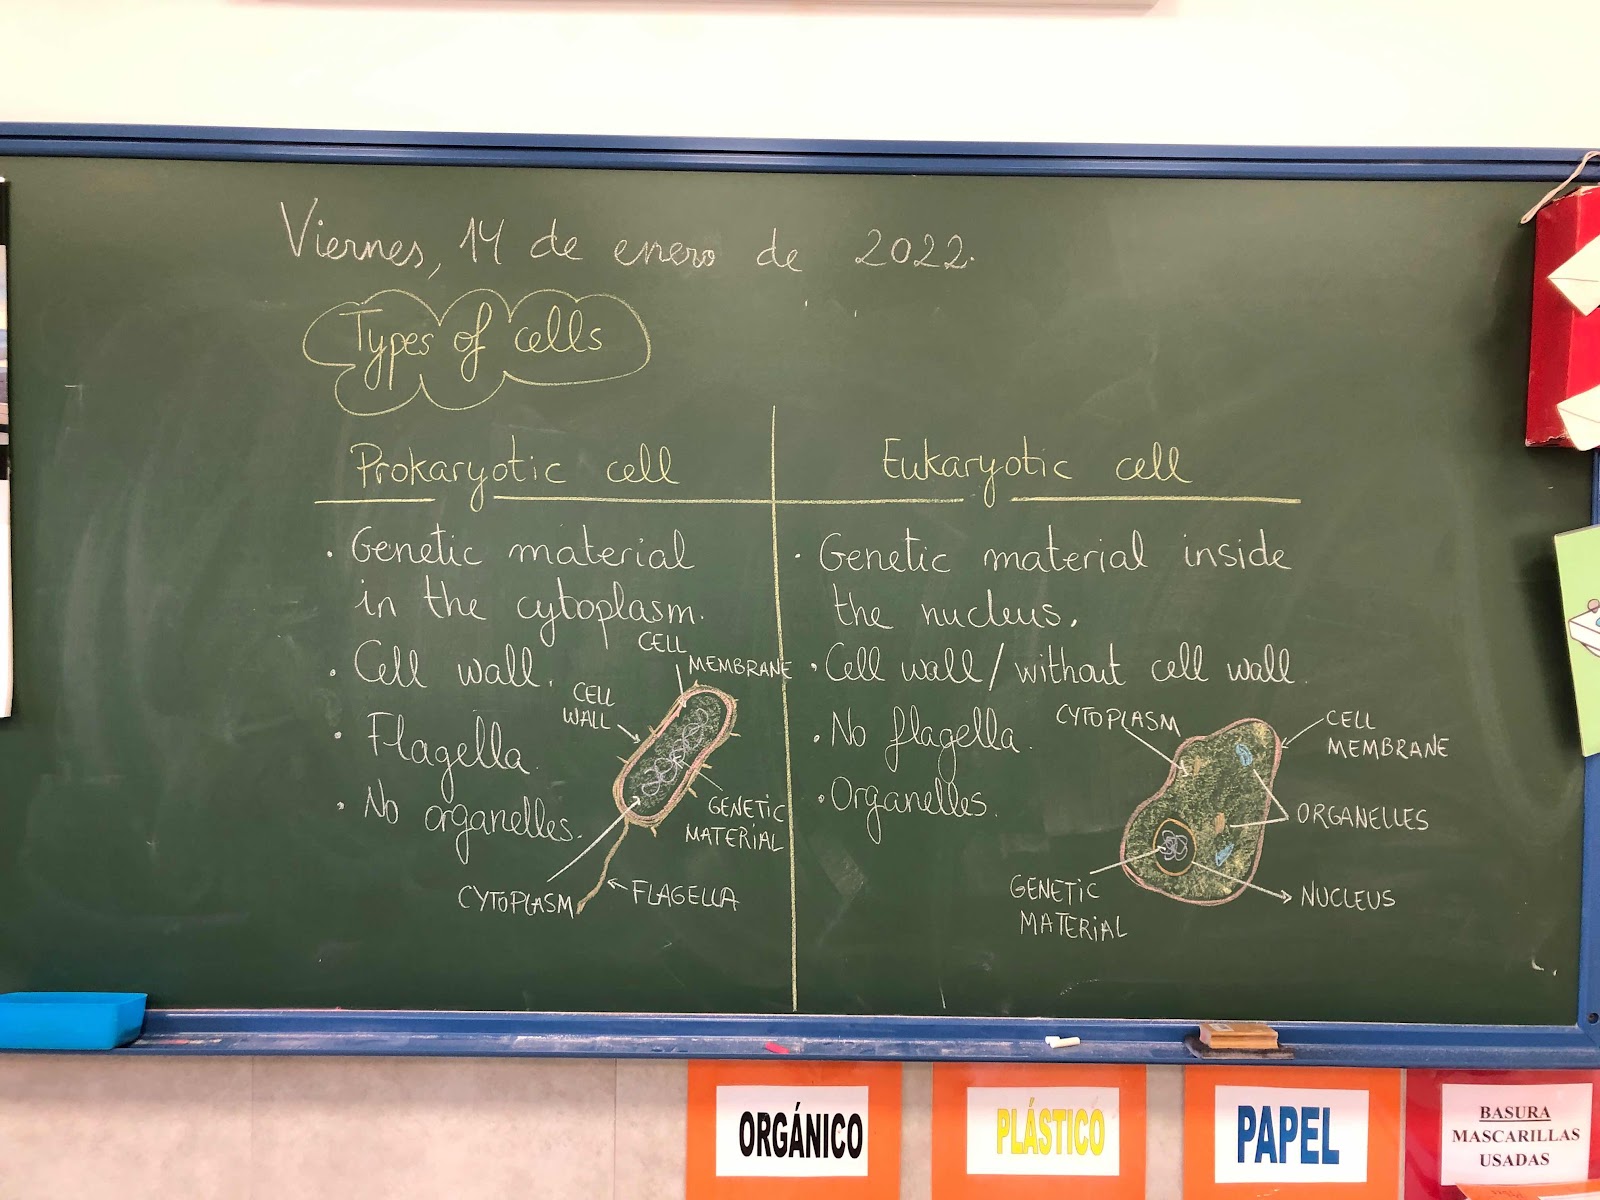 Viernes, 14 de enero de 2022.
Types of cells
Prokaryotic cell
· Genetic material
in the cytoplasm.
· Cell wall.
· Flagella.
· No organelles.
CELL
MEMBRANE
CELL
WALL
GENETIC
MATERIAL
CYTOPLASM
FLAGELLA
Eukaryotic cell
· Genetic material inside
the nucleus.
· Cell wall / without cell wall.
· No flagella.
· Organelles.
CYTOPLASM
CELL
MEMBRANE
ORGANELLES
GENETIC
MATERIAL
NUCLEUS
ORGÁNICO
PLÁSTICO
PAPEL
BASURA
MASCARILLAS
USADAS